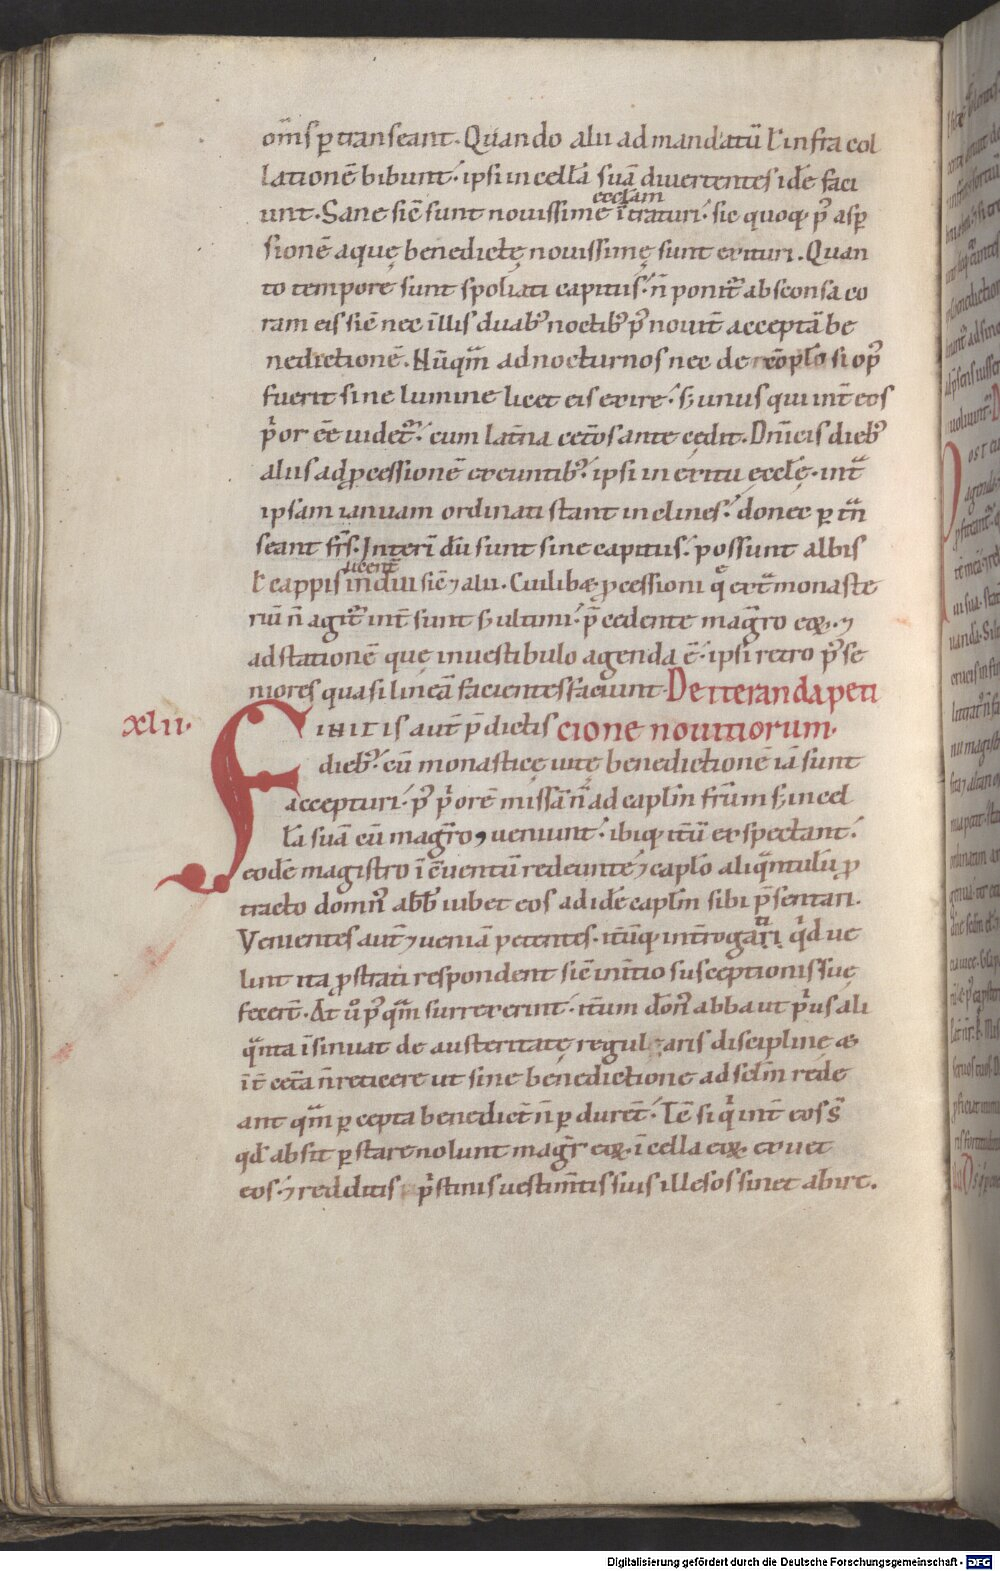 om̅s ꝑ transeant. Quando alii ad mandatū ł infra col
lationē bibunt. ipsi in cellā suā divertentes idē faci
ecclam
unt. Sane siē sunt novissime ītraturi. sic quoq; p᷒ asꝑ
sionē aquę benedictę novissimę sunt exituri. Quan
to tempore sunt spoliati caputiis. n̄ ponit᷑ absconsa co
ram eis siē nec illis duab᷒ noctib᷒ p᷒ novit̄ acceptā be
nedictionē. Nūqm̅ ad nocturnos nec de cōpl̄o si op᷒
fuerit sine lumine licet eis exire. s; unus qui int̄ eos
p̓or eē videt᷑. cum lat̄na cet̄os antecedit. Dn̄icis dieb᷒
aliis ad ꝓcessionē exeuntib᷒. ipsi in exitu eccłę. int̄
ipsam ianuam ordinati stant inclines. donec ꝑ t̄n
seant fr̄s. Interī dū sunt sine caputiis. possunt albis
ucent̄
ł cappis indui siē ⁊ alii. Cuilibæ ꝓcessioni q̄ ext̄ monaste
riū n̄ agit᷑ int̄ sunt s; ultimi. p̄cedente magr̄o eoꝝ. ⁊
ad stationē que in vestibulo agenda ē. ipsi retro p᷒ se
niores quasi lineā facientes faciunt. De iteranda peti
xlii. FINITIS aut̄ p̄dictis cione novitiorum.
dieb᷒. cū monasticę vitę benedictionē iā sunt
accepturi. p᷒ p̓orē missā n̄ ad capłm fr̄m s; in cel
lā suā cū magr̄o veniunt. ibiq; itū exspectant.
eodē magistro ī cventū redeunte ⁊ capło aliq̄ntulū ꝓ
tracto domn᷒ abb̄ iubet eos ad idē capłm sibi p̄sentari.
Venientes aut̄ ⁊ veniā petentes. itūq; int̄rogati q̓d ve
lunt ita ꝓstrati respondent siē initio susceptionis suę
fecer̄t. At ů p᷒ qm̅ surrexerint. itum dōn᷒ abba ut p̓us ali
q̄nta īsinuat de austeritate regularis discipline æ
īt̄ cet̄a n̄ reticere ut sine benedictione ad scłm rede
ant qm̅ ꝑcepta benedict̄ n̄ ꝑdurēt. Iē si q̓ int̄ eos s̄
qđ absit ꝑstare nolunt magr̄ eoꝝ. ī cella eoꝝ. exuet
eos. ⁊ redditis p̓stinis vestim̄tis suis illesos sinet abire.
Digitalisierung gefördert durch die Deutsche Forschungsgemeinschaft - DFG